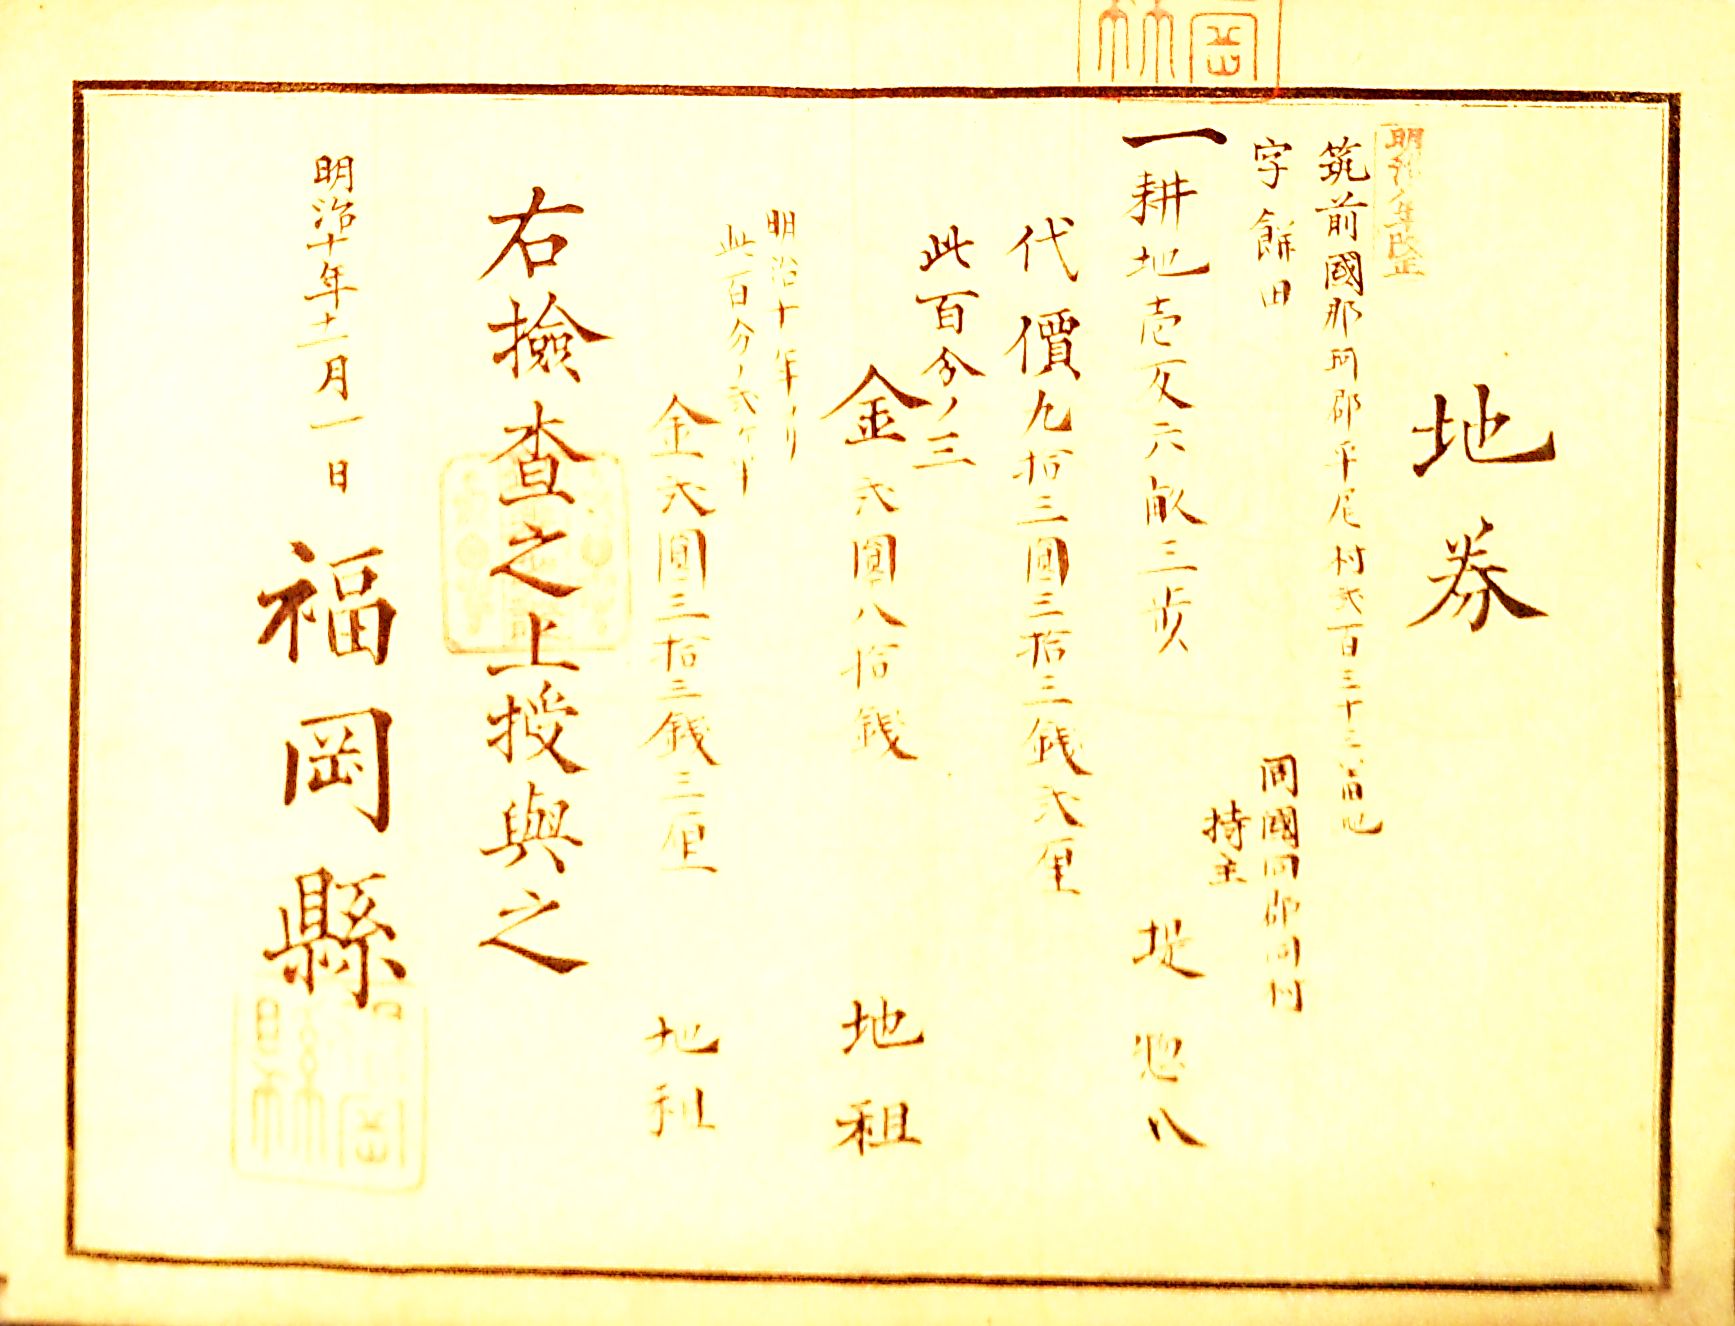 地券
明治八年改正
筑前國那珂郡平尾村弐百三十三番地
字餅田
同國同郡同村
持主
一耕地壱反六畝三歩
堤惣八
代價九拾三圓三拾三銭弐厘
此百分ノ三
金弐圓八拾銭
地租
明治十年ヨリ
此百分ノ弐ヶ半
金弐圓三拾三銭三厘
地租
右撿査之上授與之
明治十年十一月一日
福岡縣